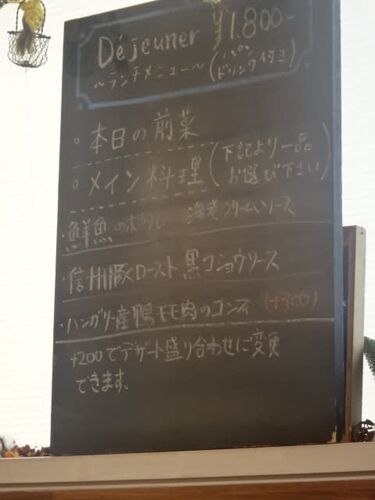 Déjeuner ¥1.800-
～ランチメニュー～(パン ドリンク付き)
・本日の前菜
・メイン料理(下記より一品 お選び下さい)
・鮮魚のポワレ 海老クリームソース
・信州豚ロースト 黒コショウソース
・ハンガリー産鴨モモ肉のコンフィ (+300)
+200でデザート盛り合わせに変更
できます。